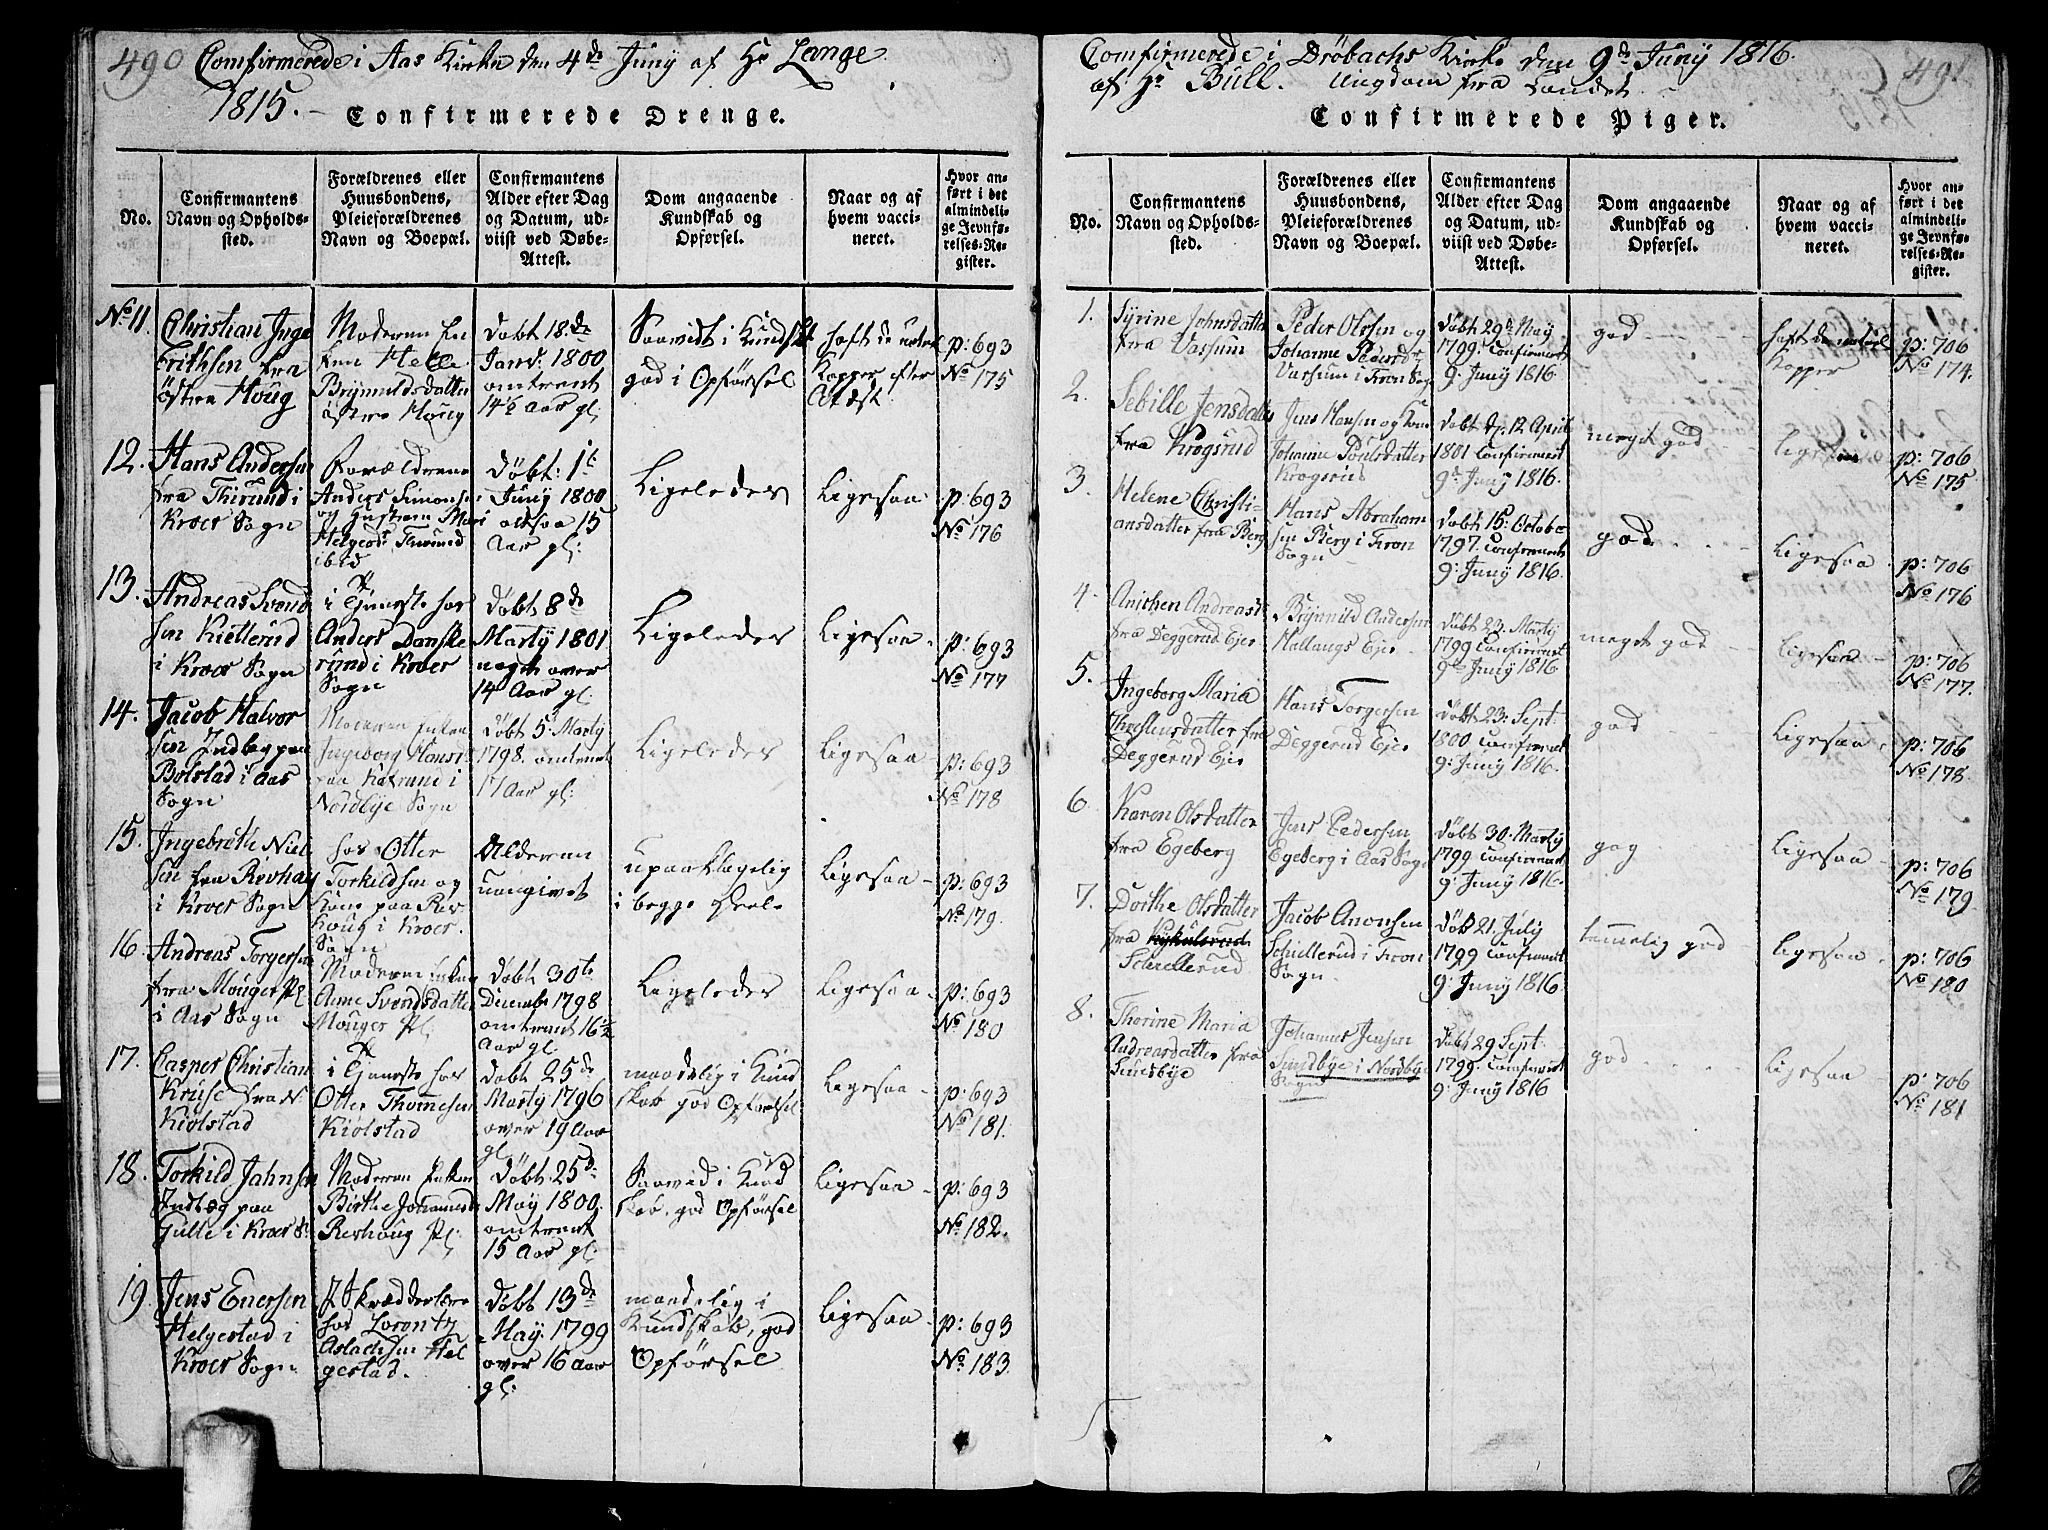 490 Comfirmerede i Aas Kirke den 4de Juny af Hr Lange
1815.
Confirmerede Drenge.
No.
Confirmantens
Navn og Opholds-
sted.
Forældrenes eller
Huusbondens,
Pleieforældrenes
Navn og Boepæl.
Confirmantens
Alder efter Dag
og Datum, ud-
viist ved Døbe-
Attest.
Dom angaaende
Kundskab og
Opførsel.
Naar og af
hvem vacci-
neret.
Hvor an-
ført i det
almindeli-
ge Jevnfø-
relses-Re-
gister.
No 11.
Christian Inge
Erichsen fra
östre Houg
Moderen En
ken Helle
Brynnildsdatter
östre Houg
Døbt 18de
Janv: 1800
omtrent
14½ Aar gl:
Saavidt i Kundskb
god i Opførsel
haft de natrl
Kopper efter
Atæst
p: 693
No 175
12.
Hans Andersen
fra Thirund i
Kroer Sogn
Forældrene
Anders Simonsen
og Hustrue Mari
Helgesdr
ibid
Døbt: 1te
Juny 1800
altsaa 15
Aar gl:
Ligeledes
Ligesaa
p: 693
No 176
13.
Andreas Svend
sen Kiellerud
i Kroer Sogn
i Tjeneste hos
Anders Danske
rynd i Kroer
Sogn
Døbt 8de
Marty 1801
noget over
14 Aar gl.
Ligeledes
Ligesaa
p: 693
No 177
14.
Jacob Halvor
sen Indlæg paa
Bolstad i Aas
Sogn
Moderen Enken
Ingeborg Hansdr
paa Kaxrund i
Nordbye Sogn
Døbt 5 Marty
1798. omtrent
17 Aar gl:
Ligeledes
Ligesaa
p: 693
No 178
15.
Ingebreth Niel
sen fra Revhaug
i Kroer Sogn
hos Otter
Torkildsen og
Kone paa Rev
houg i Kroer
Sogn
Alderen
uangivet
upaaklagelig
i begge Deele
Ligesaa
p: 693
No 179.
16.
Andreas Torgersen
fra Mouger Pl
i Aas Sogn
Moderen Enken
Anne Svendsdatter
Mouger Pl.
Døbt 30te
Decembr 1798
omtrent 16½
Aar gl.
Ligeledes
Ligesaa
p: 693
No 180
17.
Casper Christian
Kruse fra N
Kiölstad
i Tjeneste hos
Otter Thomesen
Kiölstad
Døbt 25de
Marty 1796
over 19 Aar
gl.
maadelig i Kund
skab god Opførsel
Ligesaa
p: 693
No 181.
18.
Torkild Jahnsen
Indlæg paa
Gulle i Kroer S.
Moderen Enken
Birthe Johannesdr
Revhoug Pl:
Døbt 25de
May 1800.
omtrent
15 Aar gl:
Saavid i Kund
skab, god Opførsel
Ligesaa
p: 693
No 182.
19.
Jens Enersen
Helgestad i
Kroer Sogn
P Skrædderlære
hos Lorentz
Aslachsen Hel
gestad.
Døbt 13de
May. 1799
over 16 Aar
gl:
maadelig i
Kundskab, god
Opførsel
Ligesaa
p: 693
No 183.
Comfirmerede i Dröbachs Kirke den 9de Juny 1816.
af Hr Bull. Ungdom fra Landet.
491
Confirmerede Piger.
No.
Confirmantens
Navn og Opholds-
sted.
Forældrenes eller
Huusbondens,
Pleieforældrenes
Navn og Boepæl.
Confirmantens
Alder efter Dag
og Datum, ud-
viist ved Døbe-
Attest.
Dom angaaende
Kundskab og
Opførsel.
Naar og af
hvem vacci-
neret.
Hvor an-
ført i det
almindeli-
ge Jevnfø-
relses-Re-
gister.
1.
Syrine Johnsdatter
fra Vassum
Peder Olssen og
Johanne Pedersdr
Vassum i Fron Sogn
Døbt 29de May
1799. Confirmert
9: Juny 1816.
god
haft de naturl
Kopper
p: 706
No 174.
2.
Sebille Jensdatter
fra Krogsrud
Jens Hansen og Kone
Johanne Poulsdatter
Krogsrud
Døbt d. 12 April
1801 Confirmert
9de Juny 1816.
meget god
ligesaa
p: 706
No 175
3.
Helene Christi-
ansdatter fra Berg
Hans Abraham
sen Berg i Fron
Sogn
Døbt 15: Octobr
1797. Confirmert
9: Juny 1816.
god
Ligesaa
p: 706
No 176
4.
Anichen Andreasdr
fra Deggerud Ejer
Brynnild Andersen
Hallangs Ejer
Døbt 23. Marty
1799 Confirmert
9de Juny 1816
meget god
ligesaa
p: 706
No 177.
5.
Ingeborg Maria
fra
Deggerud Ejer
Hans Torgersen
Deggerud Ejer
Døbt 23: Sept:
1800 Confirmert
9: Juny 1816.
god
Ligesaa
p: 706
No 178.
6.
Karen Olsdatter
fra Egeberg
Jens Pedersen
Egeberg i Aas Sogn
Døbt 30. Marty
1799 Confirmert
9: Juny 1816.
gog
Ligesaa
p: 706
No 179
7.
Dorthe Olsdatter
fra
Schiellerud
Jacob Anonsen
Schiellerud i Fron
Sogn
Døbt 21. July
1799 Confirmert
9: Juny 1816
temmelig god
ligesaa
p: 706
No 180
8.
Thorine Maria
Andreasdatter fra
Sundbye
Johannes Jensen
Sundbye i Nordbye
Sogn
Døbt 29 Sept:
1799. Confirmert
9: Juny 1816
god
Ligesaa
p: 706
No 181